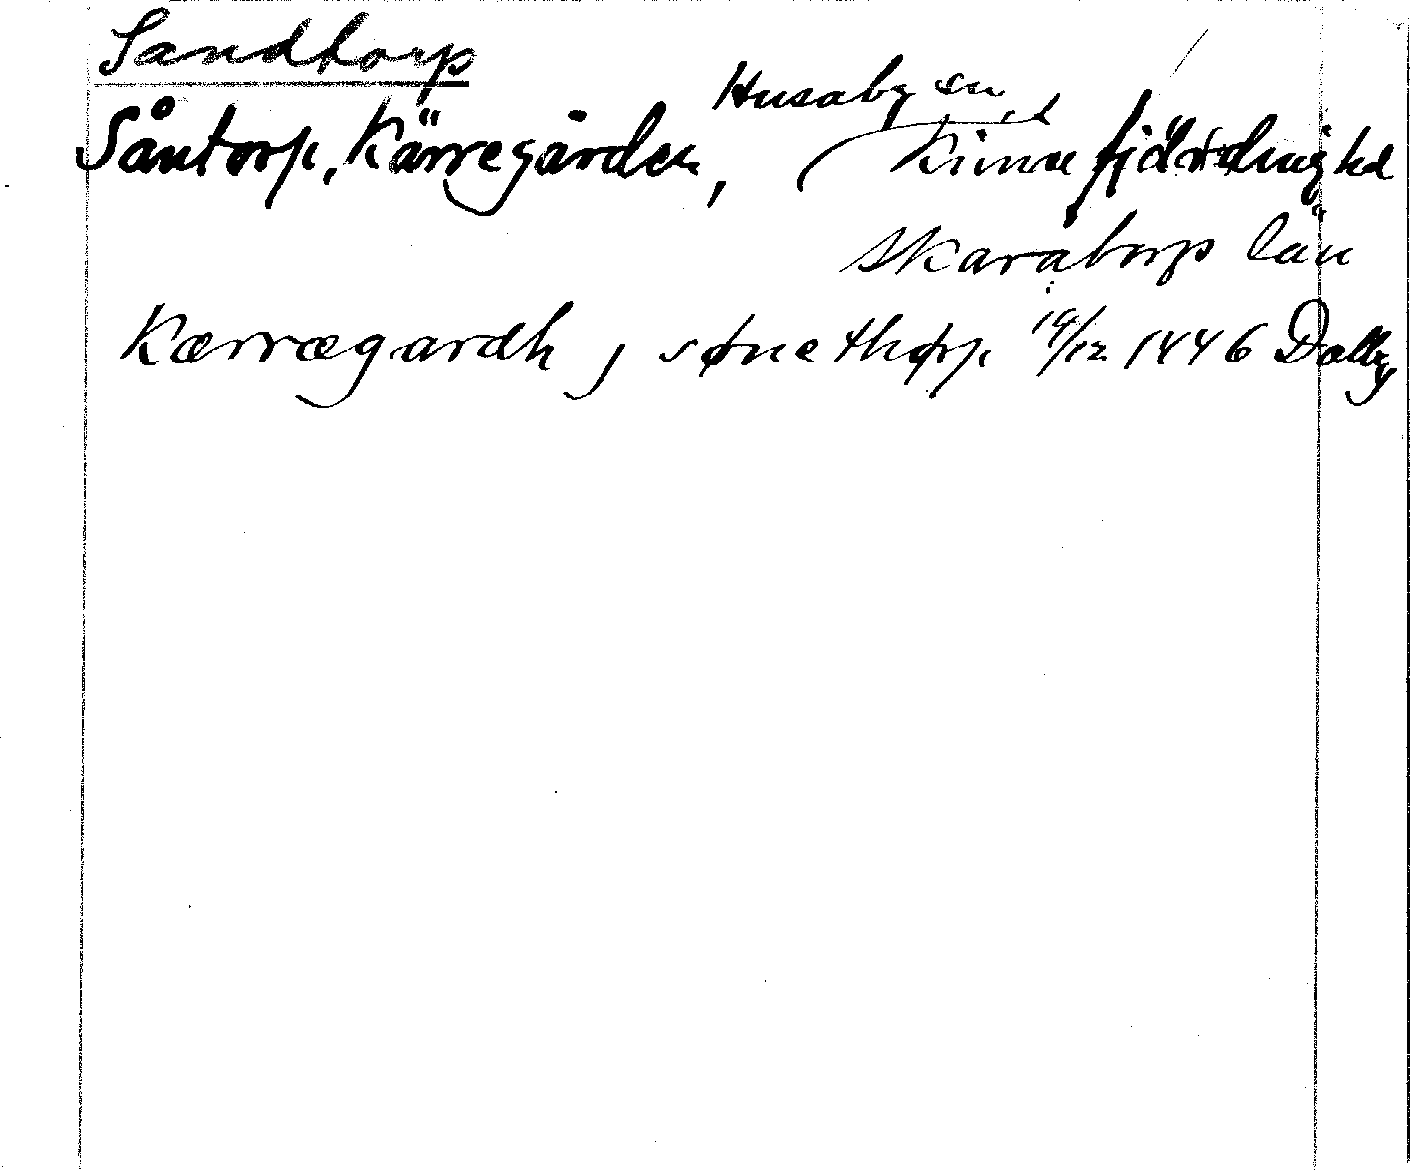 Sandtorp
Husaby sn
Såntorp, Kärregården, Kinne fjärdinghd
Skaraborgs län
Kærrægardh j sønethorp 19/12 1446 Dalby